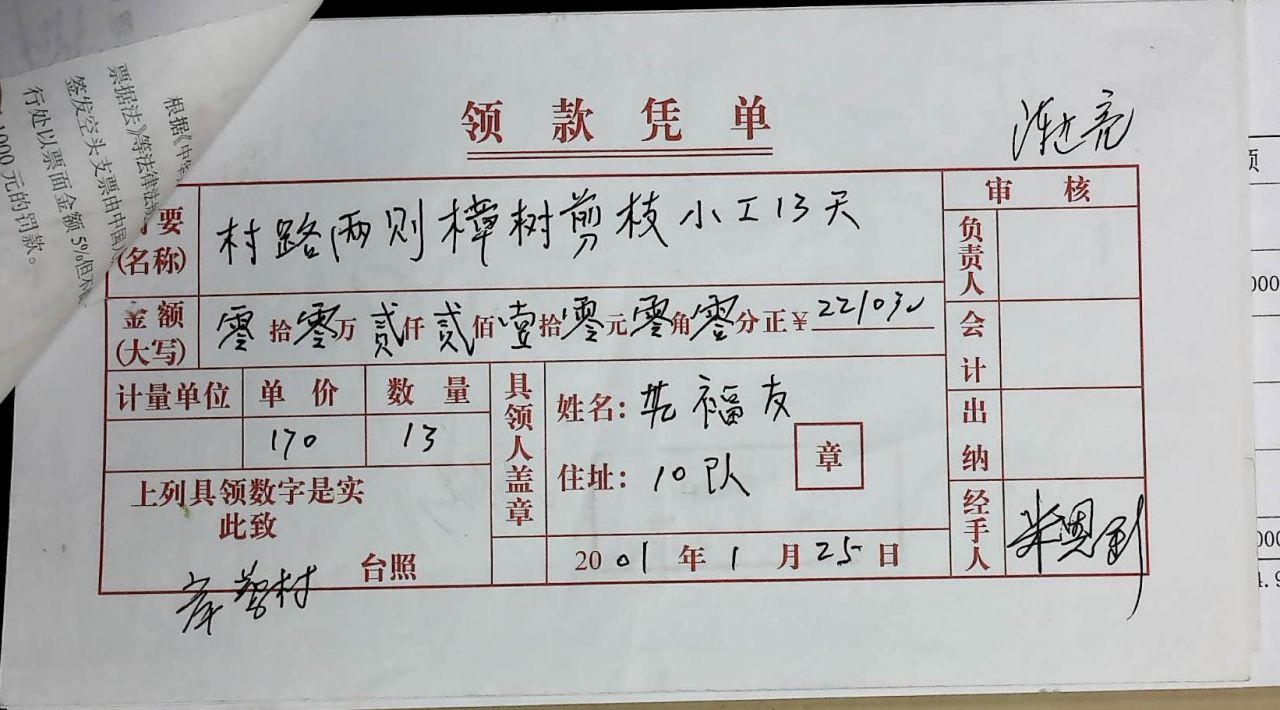 根据《中华
票据法》等法律法
签发空头支票由中国
行处以票面金额5%但不
1000元的罚款。
领款凭单
要
(名称)
村路两则樟树剪枝小工13天
审核
负责人
金额
(大写)
零拾零万贰仟贰佰壹拾零元零角零分正¥
会计
计量单位 单价 数量
170 13
具领人盖章
姓名: 福友
住址: 10队
章
出纳
上列具领数字是实
此致
台照
2001年1月25日
经手人
村